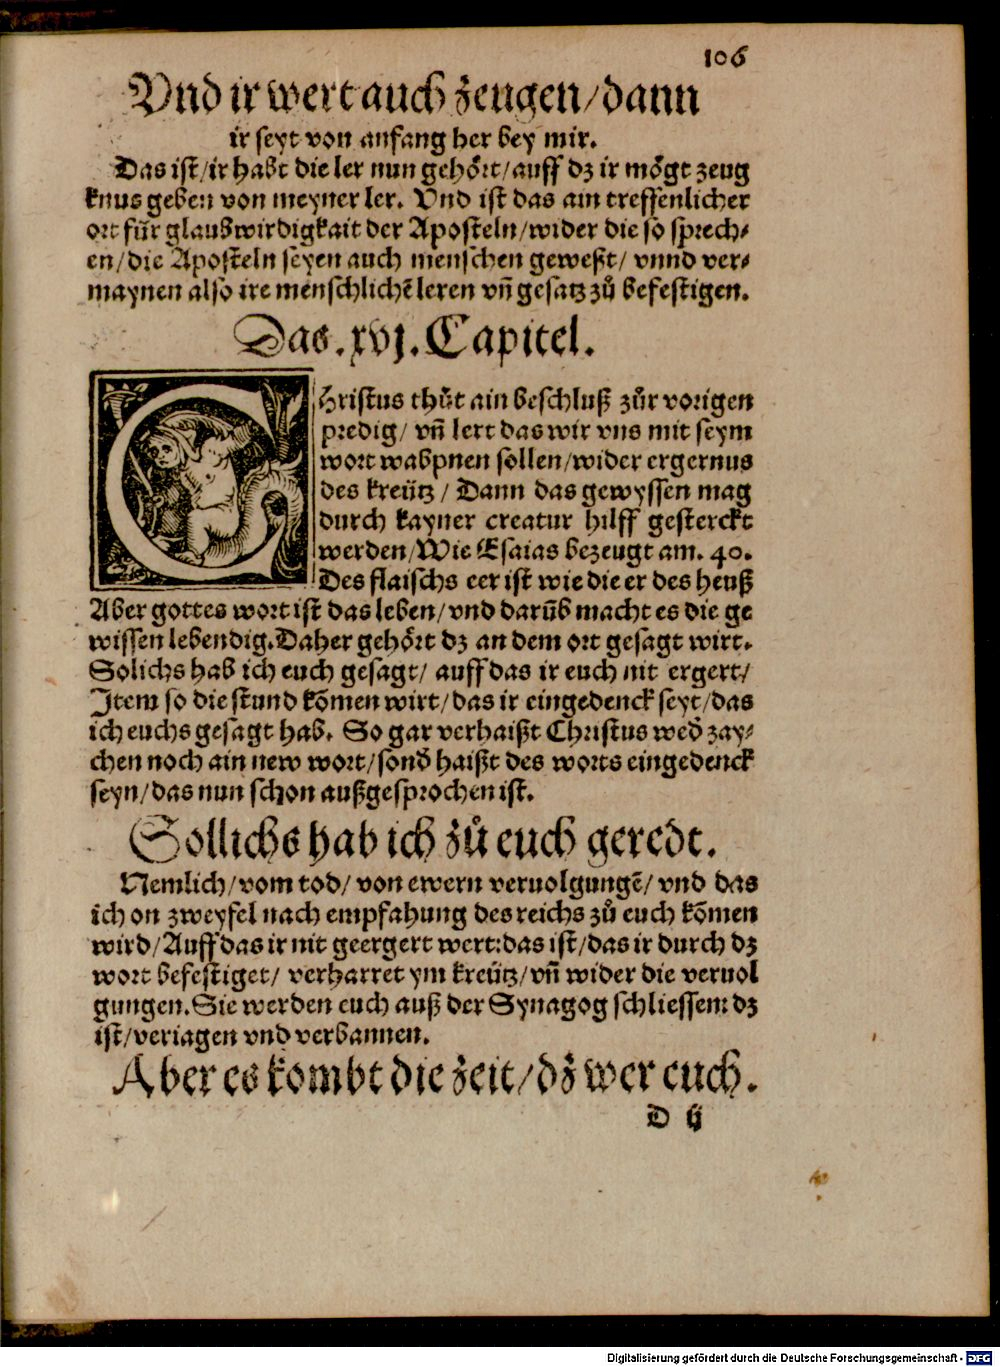 106
Vnd ir wert auch zeugen/dann
ir seyt von anfang her bey mir.
Das ist/ir habt die ler nun gehört/auff dz ir mögt zeug
knus geben von meyner ler. Vnd ist das ain treffenlicher
ort für glaubwirdigkait der Aposteln/wider die so sprech⸗
en/die Aposteln seyen auch menschen geweßt/ vnnd ver⸗
maynen also ire menschlichẽ leren vñ gesatz zů befestigen.
Das .xvj. Capitel.
CHristus thůt ain beschluß zůr vorigen
predig/ vñ lert das wir vns mit seym
wort wabpnen sollen/wider ergernus
des kreütz/ Dann das gewyssen mag
durch kayner creatur hilff gesterckt
werden/Wie Esaias bezeugt am. 40.
Des flaischs eer ist wie die er des heuß
Aber gottes wort ist das leben/vnd darüb macht es die ge
wissen lebendig. Daher gehört dz an dem ort gesagt wirt.
Solichs hab ich euch gesagt/ auff das ir euch nit ergert/
Item so die stund kõmen wirt/das ir eingedenck seyt/das
ich euchs gesagt hab. So gar verhaißt Christus wed̃ zay⸗
chen noch ain new wort/sond̃ haißt des worts eingedenck
seyn/das nun schon außgesprochen ist.
Sollichs hab ich zů euch geredt.
Nemlich/vom tod/ von ewern veruolgungẽ/ vnd das
ich on zweyfel nach empfahung des reichs zů euch kõmen
wird/Auff das ir nit geergert wert:das ist/das ir durch dz
wort befestiget/ verharret ym kreütz/vñ wider die veruol
gungen. Sie werden euch auß der Synagog schliessen: dz
ist/veriagen vnd verbannen.
Aber es kombt die zeit/dz wer euch.
D ij
Digitalisierung gefördert durch die Deutsche Forschungsgemeinschaft - DFG